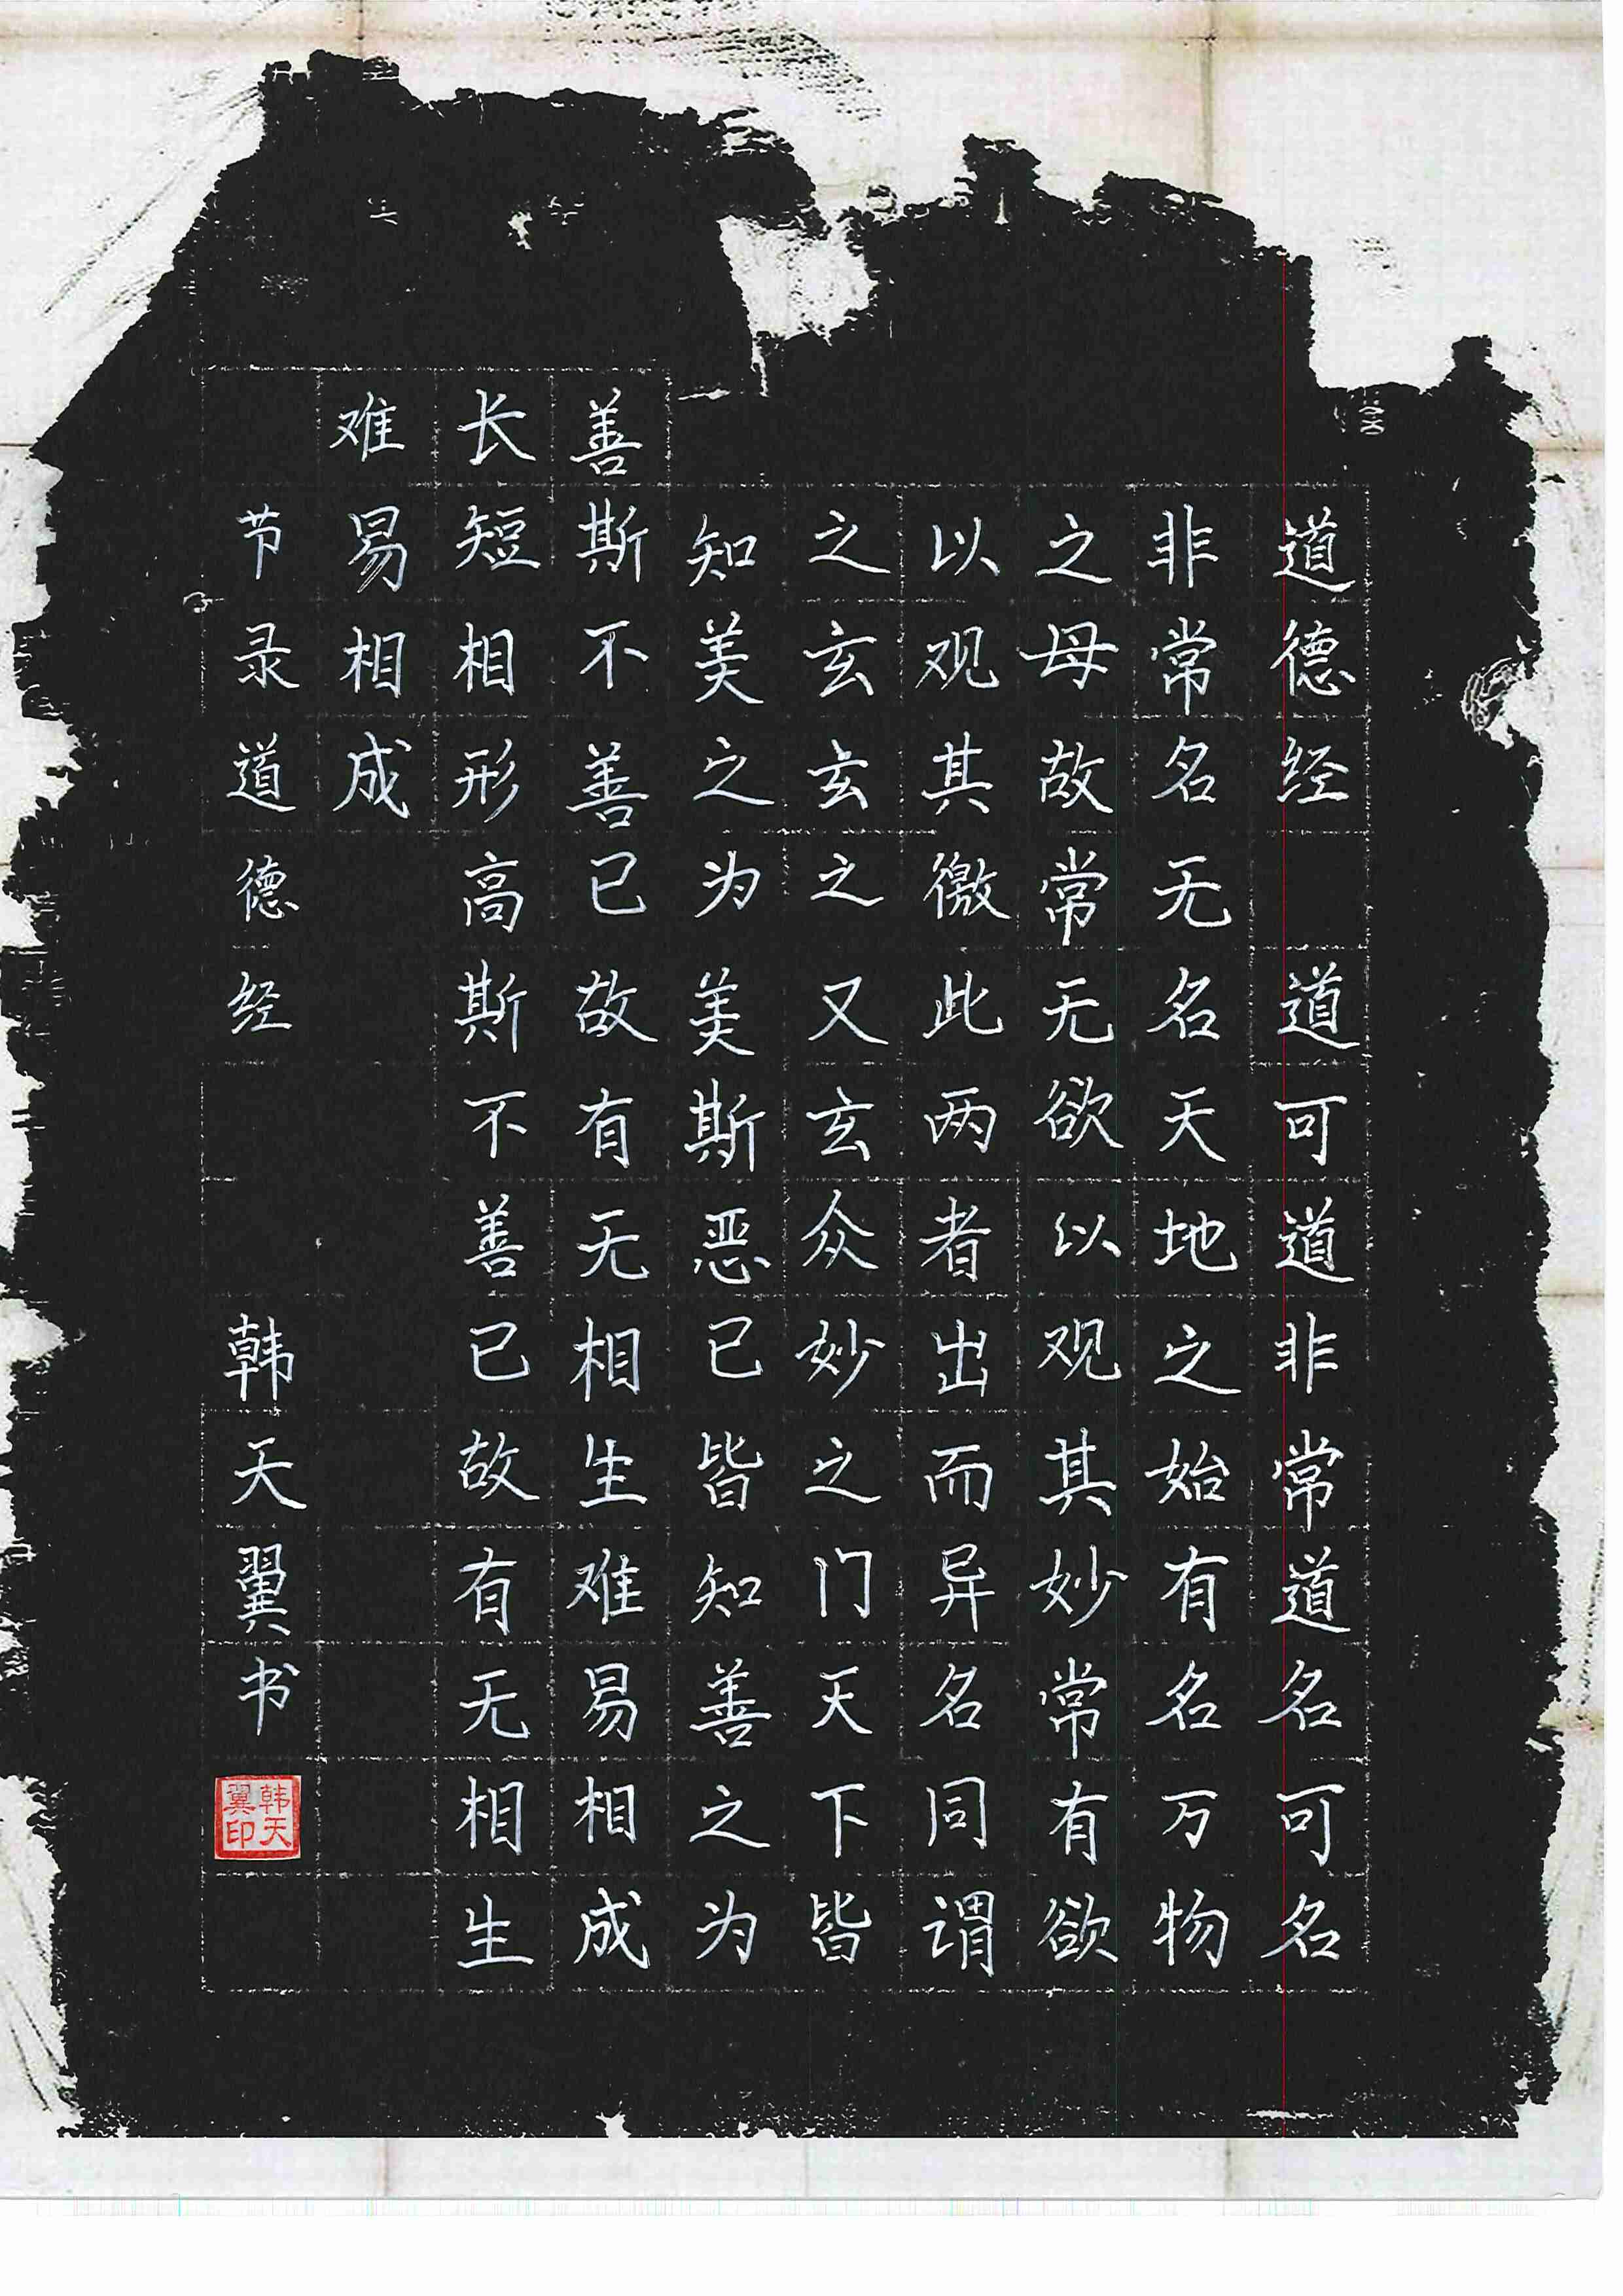 道德经 道可道非常道名可名
非常名无名天地之始有名万物
之母故常无欲以观其妙常有欲
以观其徼此两者出而异名同谓
之玄玄之又玄众妙之门天下皆
知美之为美斯恶已皆知善之为
善斯不善已故有无相生难易相成
长短相形高斯不善已故有无相生
难易相成
节录道德经 韩天翼书
韩天翼印